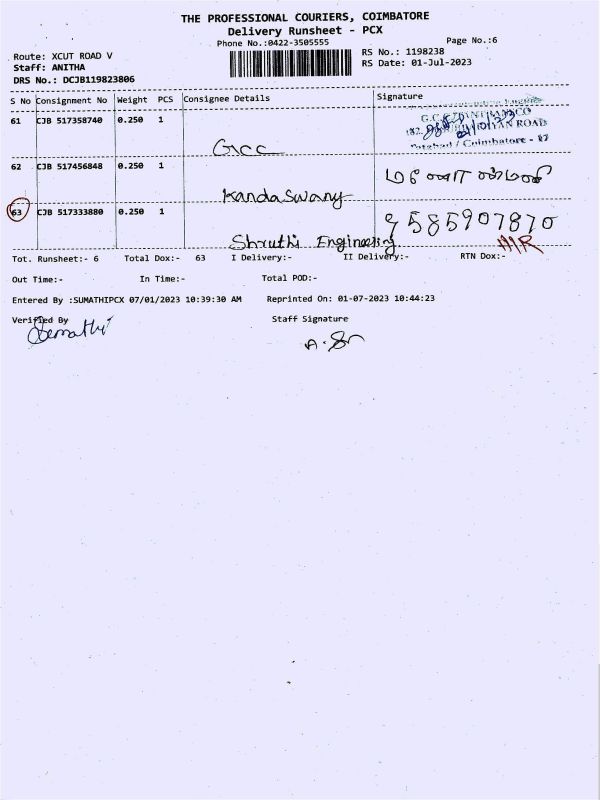 THE PROFESSIONAL COURIERS, COIMBATORE
Delivery Runsheet - PCX
Phone No.:0422-3505555
Page No.:6
Route: XCUT ROAD V
RS No.: 1198238
Staff: ANITHA
RS Date: 01-Jul-2023
DRS No.: DCJB119823806
S No Consignment No Weight PCS Consignee Details Signature
61 CJB 517358740 0.250 1
GKCC
62 CJB 517456848 0.250 1
Kanda Swamy
63 CJB 517333880 0.250 1 9585907870
Shruthi Engineering
Tot. Runsheet:- 6 Total Dox:- 63 I Delivery:- II Delivery:- RTN Dox:-
Out Time:- In Time:- Total POD:-
Entered By :SUMATHIPCX 07/01/2023 10:39:30 AM Reprinted On: 01-07-2023 10:44:23
Verified By Staff Signature